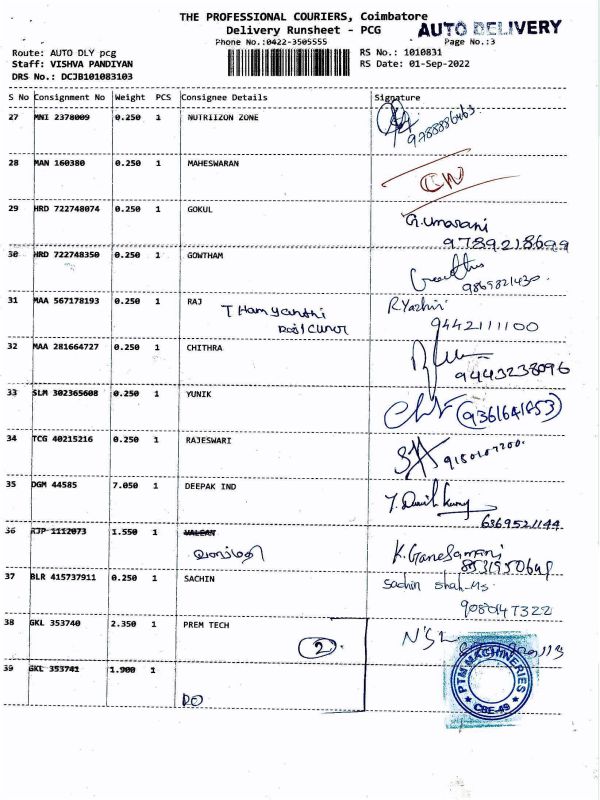 THE PROFESSIONAL COURIERS, Coimbatore
Delivery Runsheet - PCG
AUTO DELIVERY
Phone No.:0422-3505555
Page No.:3
Route: AUTO DLY pcg
RS No.: 1010831
Staff: VISHVA PANDIYAN
RS Date: 01-Sep-2022
DRS No.: DCJB101083103
S No Consignment No Weight PCS Consignee Details Signature
27 MNI 2378009 0.250 1 NUTRIIZON ZONE
9788886463
28 MAN 160380 0.250 1 MAHESWARAN
29 HRD 722748074 0.250 1 GOKUL
G.umarani
9789218699
30 HRD 722748350 0.250 1 GOWTHAM
9869821430.
31 MAA 567178193 0.250 1 RAJ
R.Yazhini
9442111100
32 MAA 281664727 0.250 1 CHITHRA
9443238096
33 SLM 302365608 0.250 1 YUNIK
9361641853
34 TCG 40215216 0.250 1 RAJESWARI
35 DGM 44585 7.050 1 DEEPAK IND
6369521144
36 KJP 1112073 1.550 1 VALEAN
K.Ganesamani
37 BLR 415737911 0.250 1 SACHIN
Sachin shah.Ms.
9080147322
38 GKL 353740 2.350 1 PREM TECH
2
39 GKL 353741 1.900 1
DO
PTM MACHINERIES
CBE-49